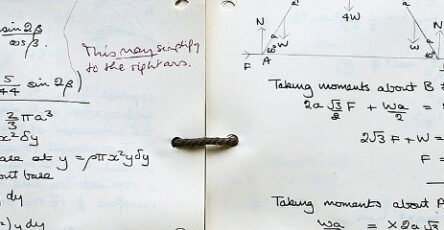 sin 2β
cos β.
This may simplify
to the right ans.
5/44 sin 2β)
2/3 πa³
x²δy
at y = ρπx²yδy
out base
dy
²) y dy
N
4W
N
W
W
a
a
60°
F A
Taking moments about B
2a √3/2 F + Wa/2 =
2√3 F + W =
F =
Taking moments about
Wa = X 2a √3